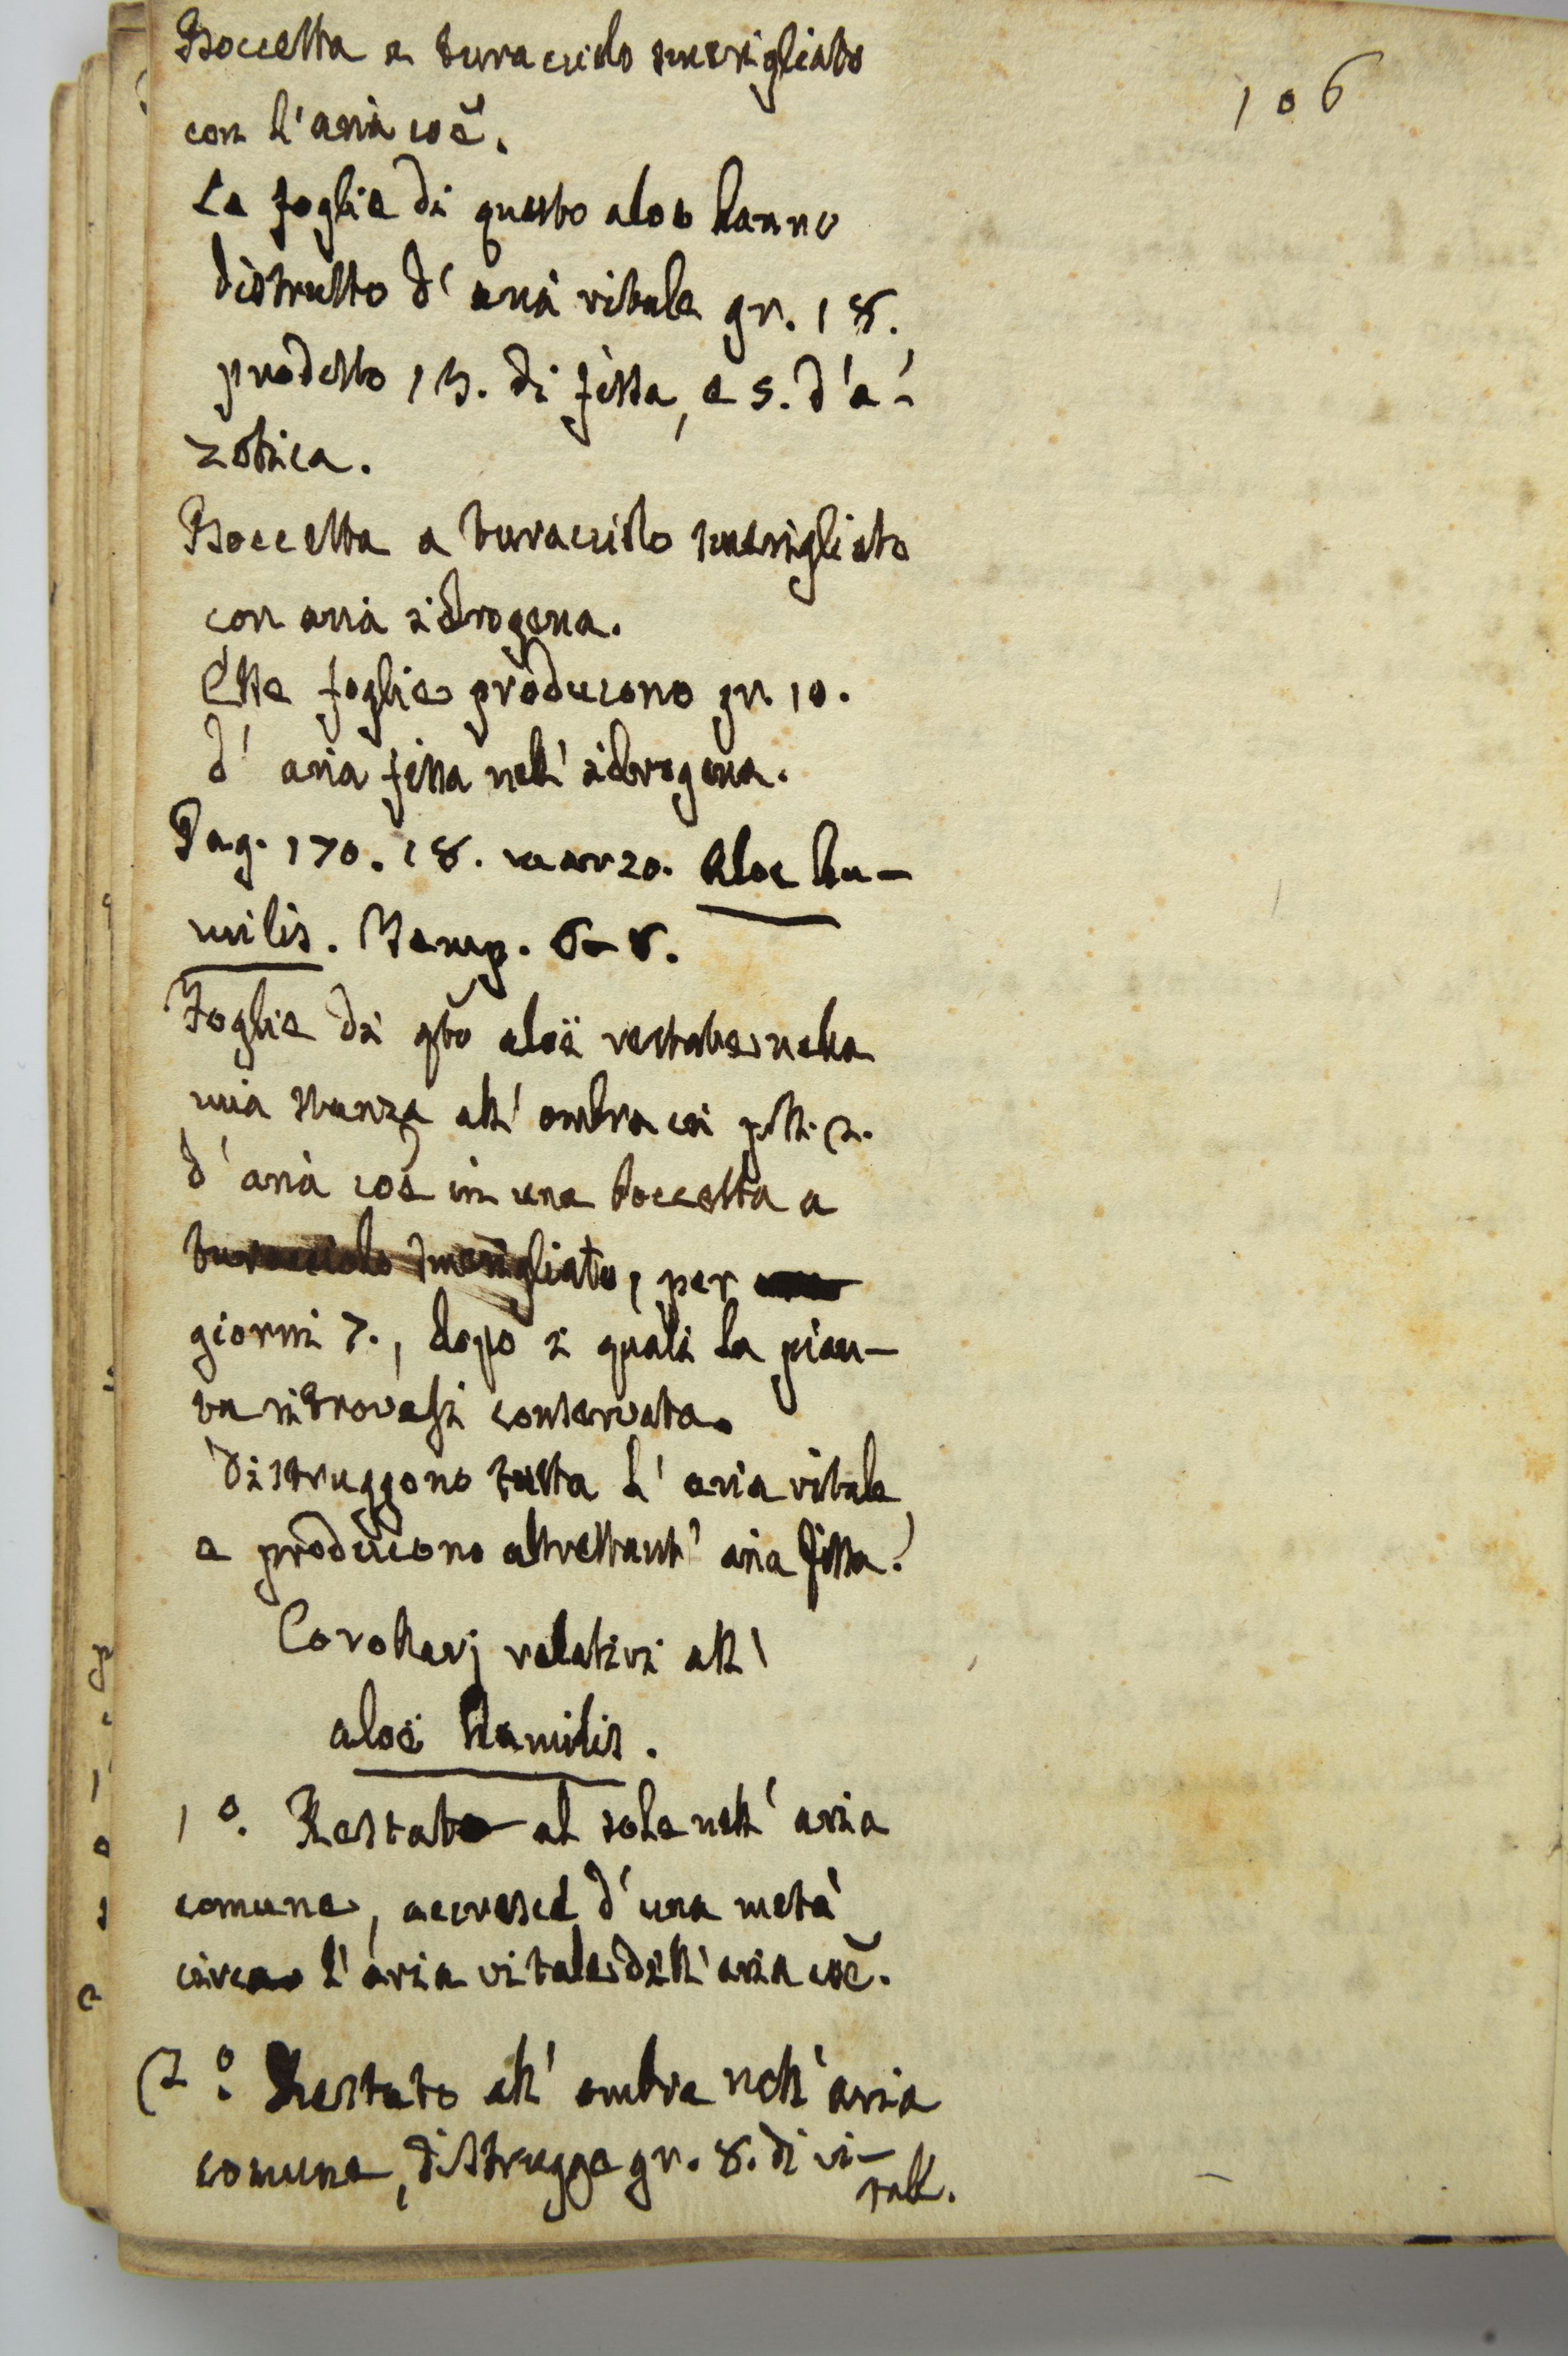 106
Boccetta a turacciolo smerigliato
con l'aria coẽ.
Le foglie di questo aloe hanno
distrutto d'aria vitale gr. 18.
prodotto 13. di fissa, e 5. d'a-
zotica.
Boccetta a turacciolo smerigliato
con aria idrogena.
Esse foglie producono gr. 10.
d'aria fissa nell'idrogena.
Pag. 170. 18. marzo. Aloe hu-
milis. Temp. 6-8.
Foglie di qto aloë restate nella
mia stanza all'ombra coi poll. 2.
d'aria coẽ in una boccetta a
turacciolo smerigliato, per
giorni 7., dopo i quali la pian-
ta ritrovasi conservata.
Distruggono tutta l'aria vitale,
e producono altrettant'aria fissa.
Corollarj relativi all'
aloë Humilis.
1°. Restato al sole nell'aria
comune, accresce d'una metà
circa l'aria vitale dell'aria coẽ.
2°. Restato all'ombra nell'aria
comune, distrugge gr. 8. di vi-
tale.